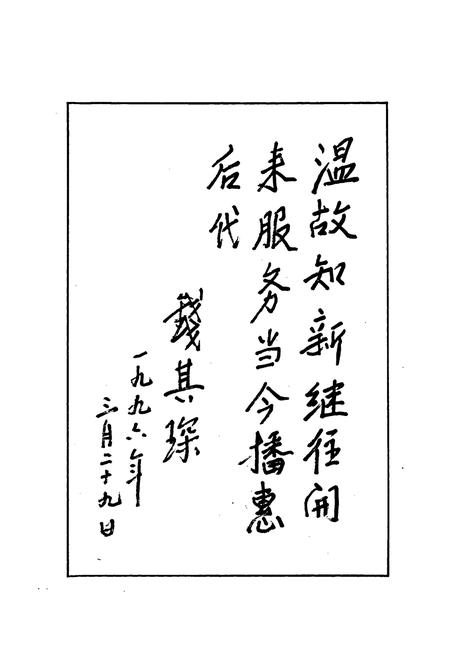 温故知新继往开
来服务当今播惠
后代
錢其琛
一九九六年
三月二十九日